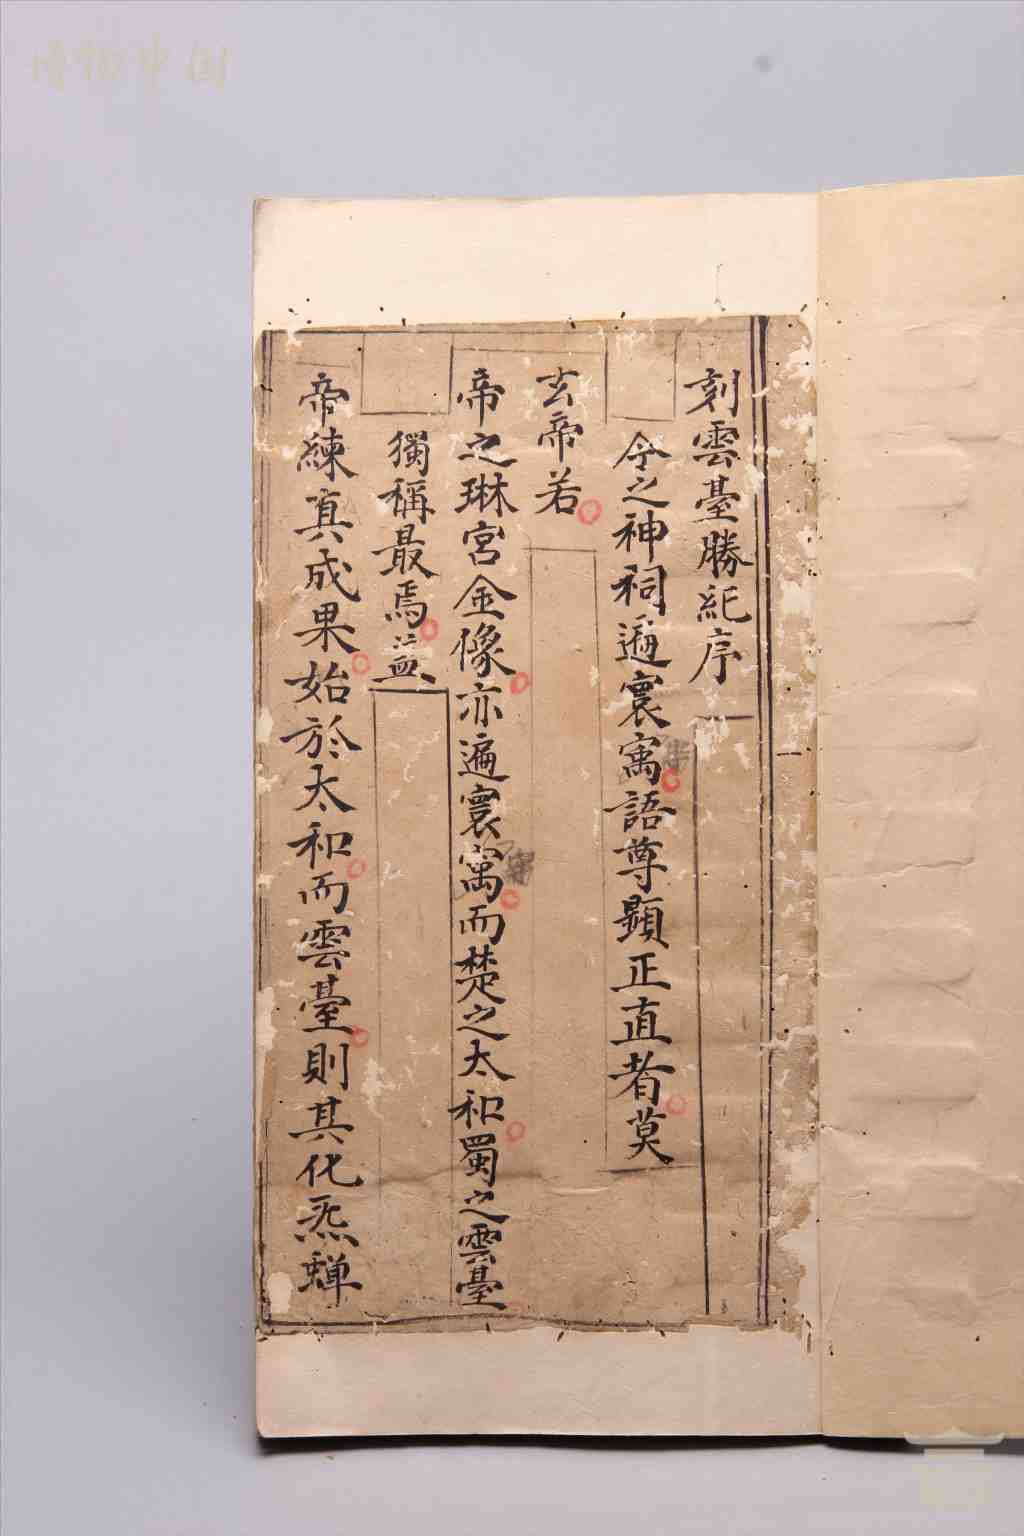 刻雲臺勝紀序
今之神祠遍寰寓語尊顯正直者莫
玄帝若
帝之琳宮金像亦遍寰寓而楚之太和蜀之雲臺
獨稱最焉盖
帝練真成果始於太和而雲臺則其化炁蝉
博物中国